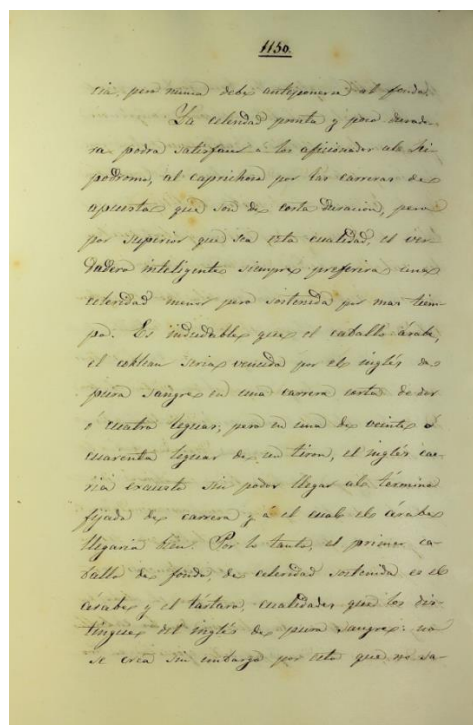 1150.
cia, pero nunca debe anteponerse al fondo.
La celeridad pronta y poco durade-
ra podrá satisfacer á los aficionados al hi-
pódromo, al caprichoso por las carreras de
apuesta que son de corta duracion, pero
por superior que sea esta cualidad, el ver-
dadero inteligente siempre preferirá una
celeridad menor pero sostenida por mas tiem-
po. Es indudable que el caballo árabe,
el seria vencido por el inglés de
pura sangre en una carrera corta de dos
ó cuatro leguas, pero en una de veinte á
cuarenta leguas de un tiron, el inglés cae-
ria exausto sin poder llegar al término
fijado de carrera y á el cual el árabe
llegaria bien. Por lo tanto, el primer ca-
ballo de fondo, de celeridad sostenida es el
árabe y el tártaro, cualidades que los dis-
tingue del inglés de pura sangre: no
se crea sin embargo por esto que no sa-